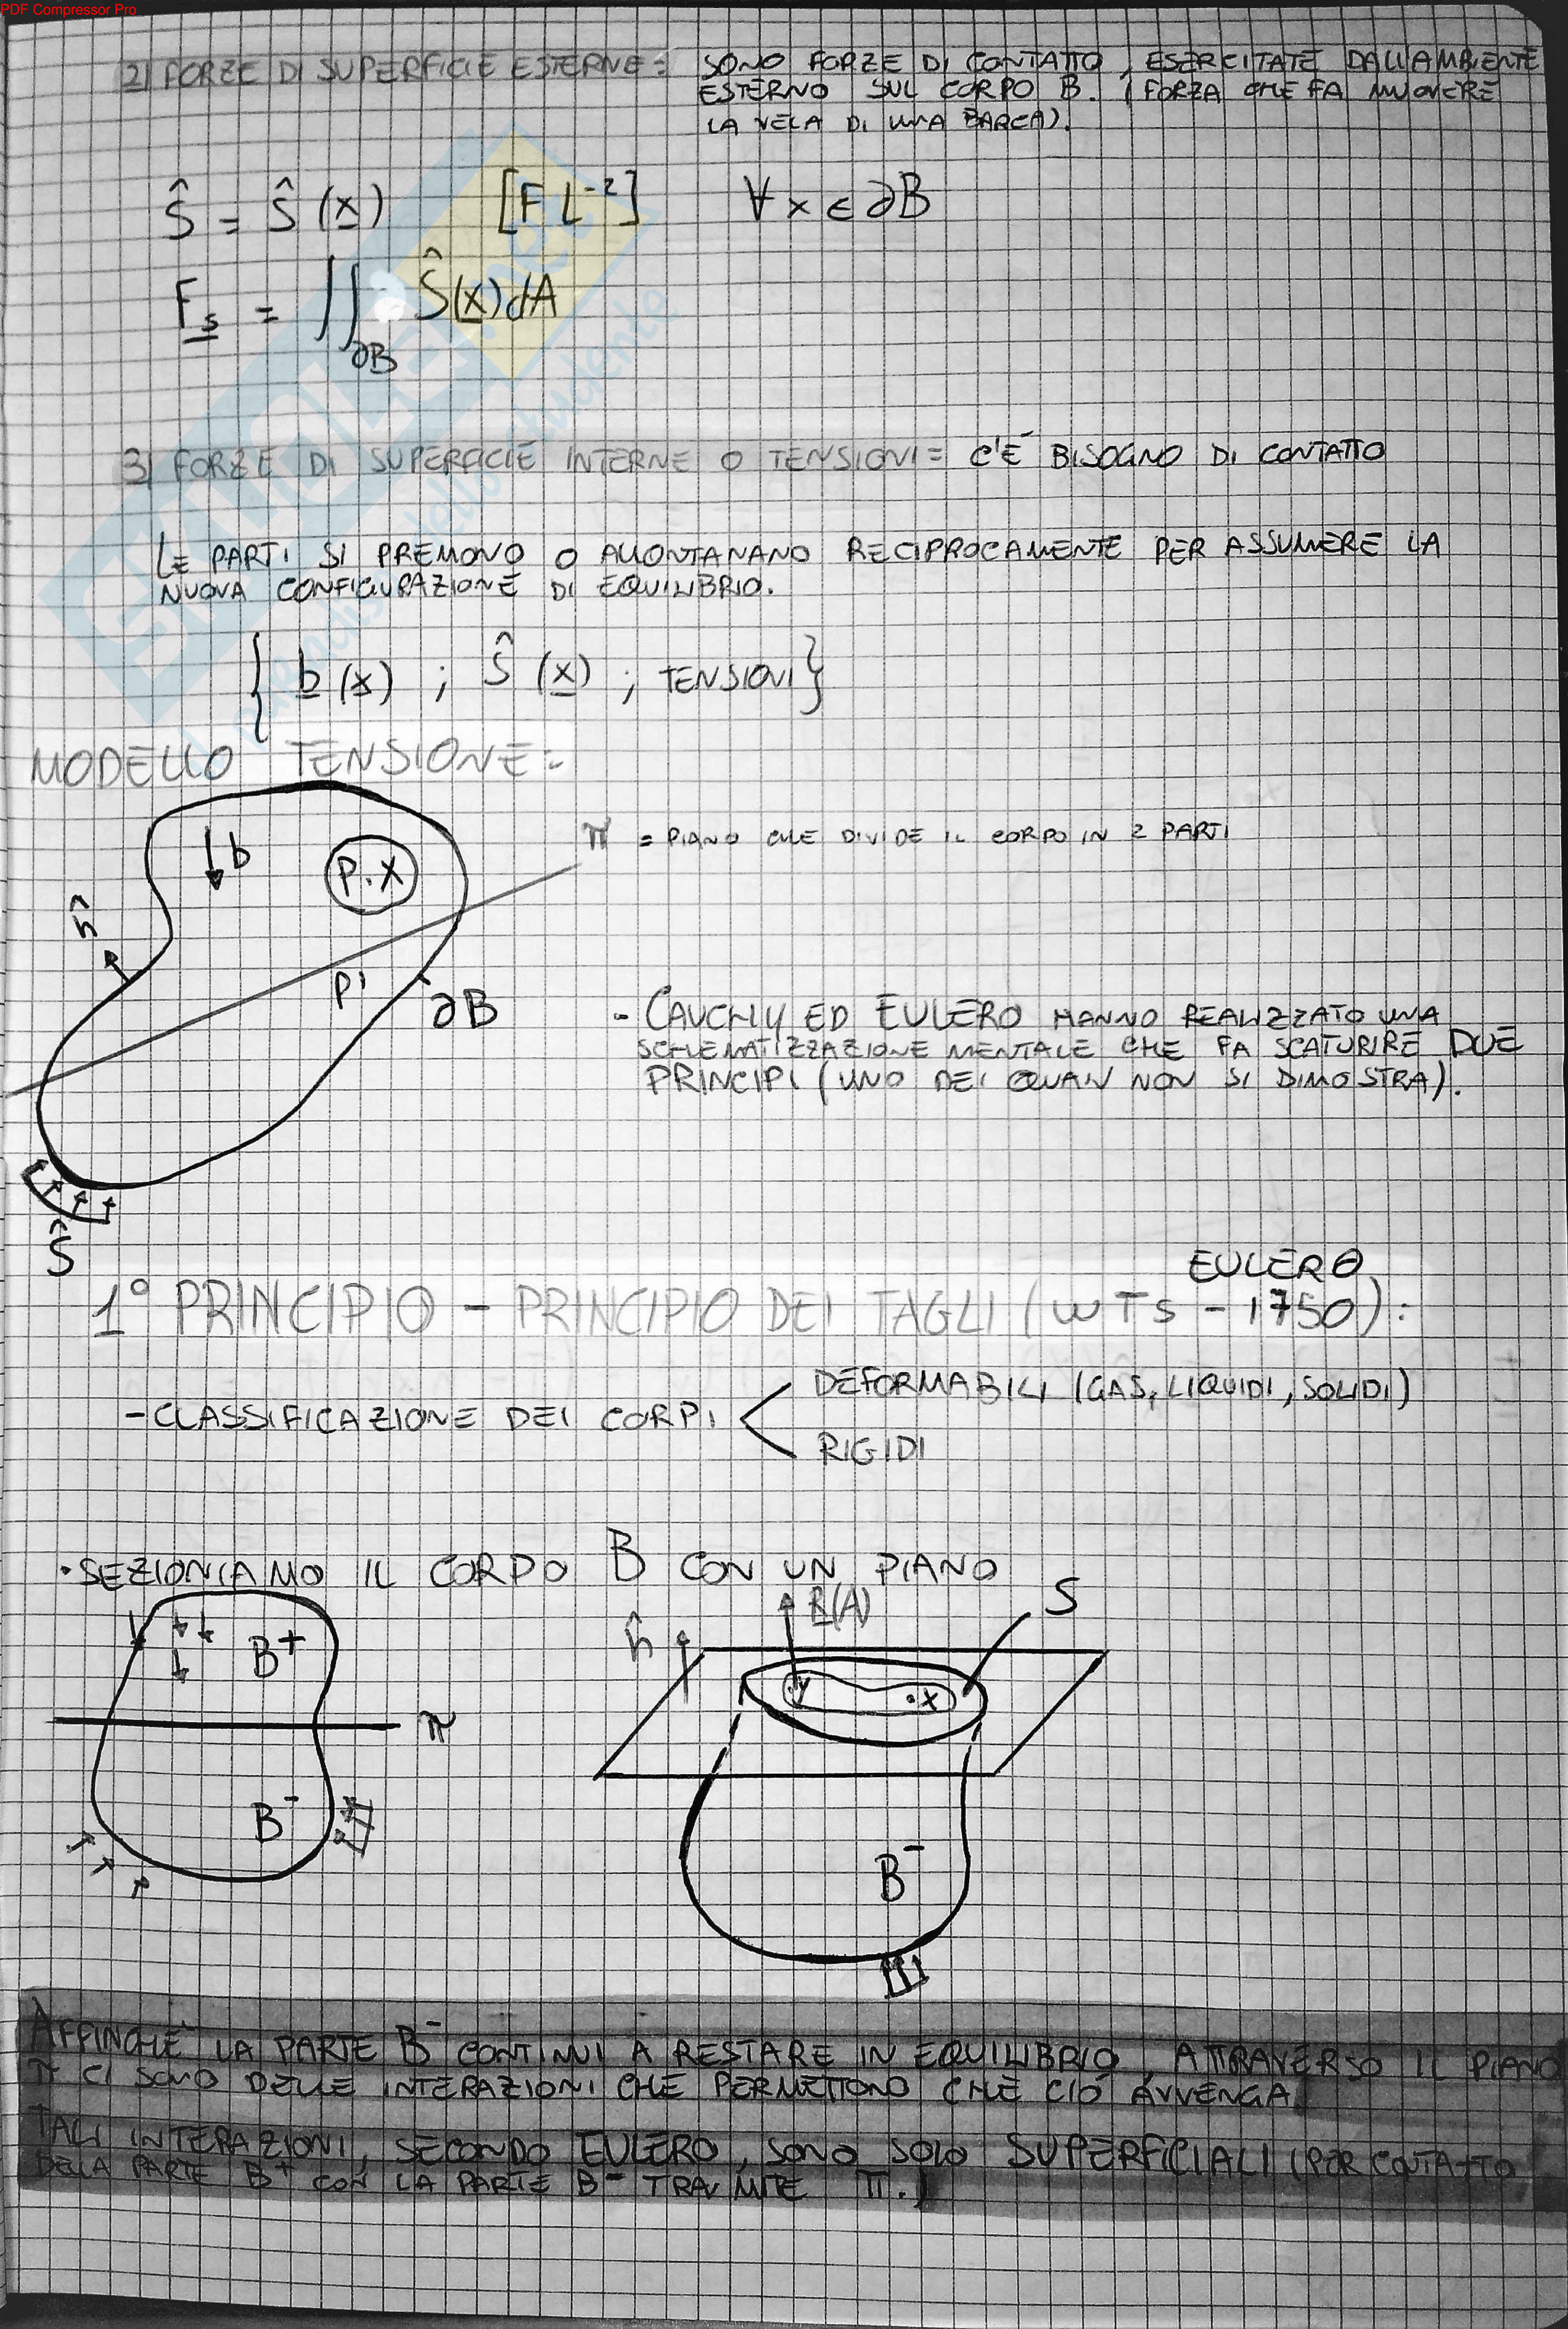 PDF Compressor Pro
2) FORZE DI SUPERFICIE ESTERNE = SONO FORZE DI CONTATTO, ESERCITATE DALL'AMBIENTE
ESTERNO SUL CORPO B. (FORZA CHE FA MUOVERE
LA VELA DI UNA BARCA).
Ŝ = Ŝ (x) [F L⁻²] ∀ x ∈ ∂B
F_s = ∬_∂B Ŝ(x) dA
3) FORZE DI SUPERFICIE INTERNE O TENSIONI = C'È BISOGNO DI CONTATTO
LE PARTI SI PREMONO O ALLONTANANO RECIPROCAMENTE PER ASSUMERE LA
NUOVA CONFIGURAZIONE DI EQUILIBRIO.
{ b (x) ; Ŝ (x) ; TENSIONI }
MODELLO TENSIONE =
π = PIANO CHE DIVIDE IL CORPO IN 2 PARTI
b
P.X
n̂
P'
∂B
- CAUCHY ED EULERO HANNO REALIZZATO UNA
SCHEMATIZZAZIONE MENTALE CHE FA SCATURIRE DUE
PRINCIPI (UNO DEI QUALI NON SI DIMOSTRA).
Ŝ
EULERO
1° PRINCIPIO - PRINCIPIO DEI TAGLI (WTS - 1750) :
- CLASSIFICAZIONE DEI CORPI
DEFORMABILI (GAS, LIQUIDI, SOLIDI)
RIGIDI
• SEZIONIAMO IL CORPO B CON UN PIANO
B⁺
π
B⁻
n̂
R(A)
S
y
.x
B⁻
AFFINCHÈ LA PARTE B⁻ CONTINUI A RESTARE IN EQUILIBRIO, ATTRAVERSO IL PIANO
π CI SONO DELLE INTERAZIONI CHE PERMETTONO CHE CIÒ AVVENGA.
TALI INTERAZIONI, SECONDO EULERO, SONO SOLO SUPERFICIALI (PER CONTATTO
DELLA PARTE B⁺ CON LA PARTE B⁻ TRAMITE π.)